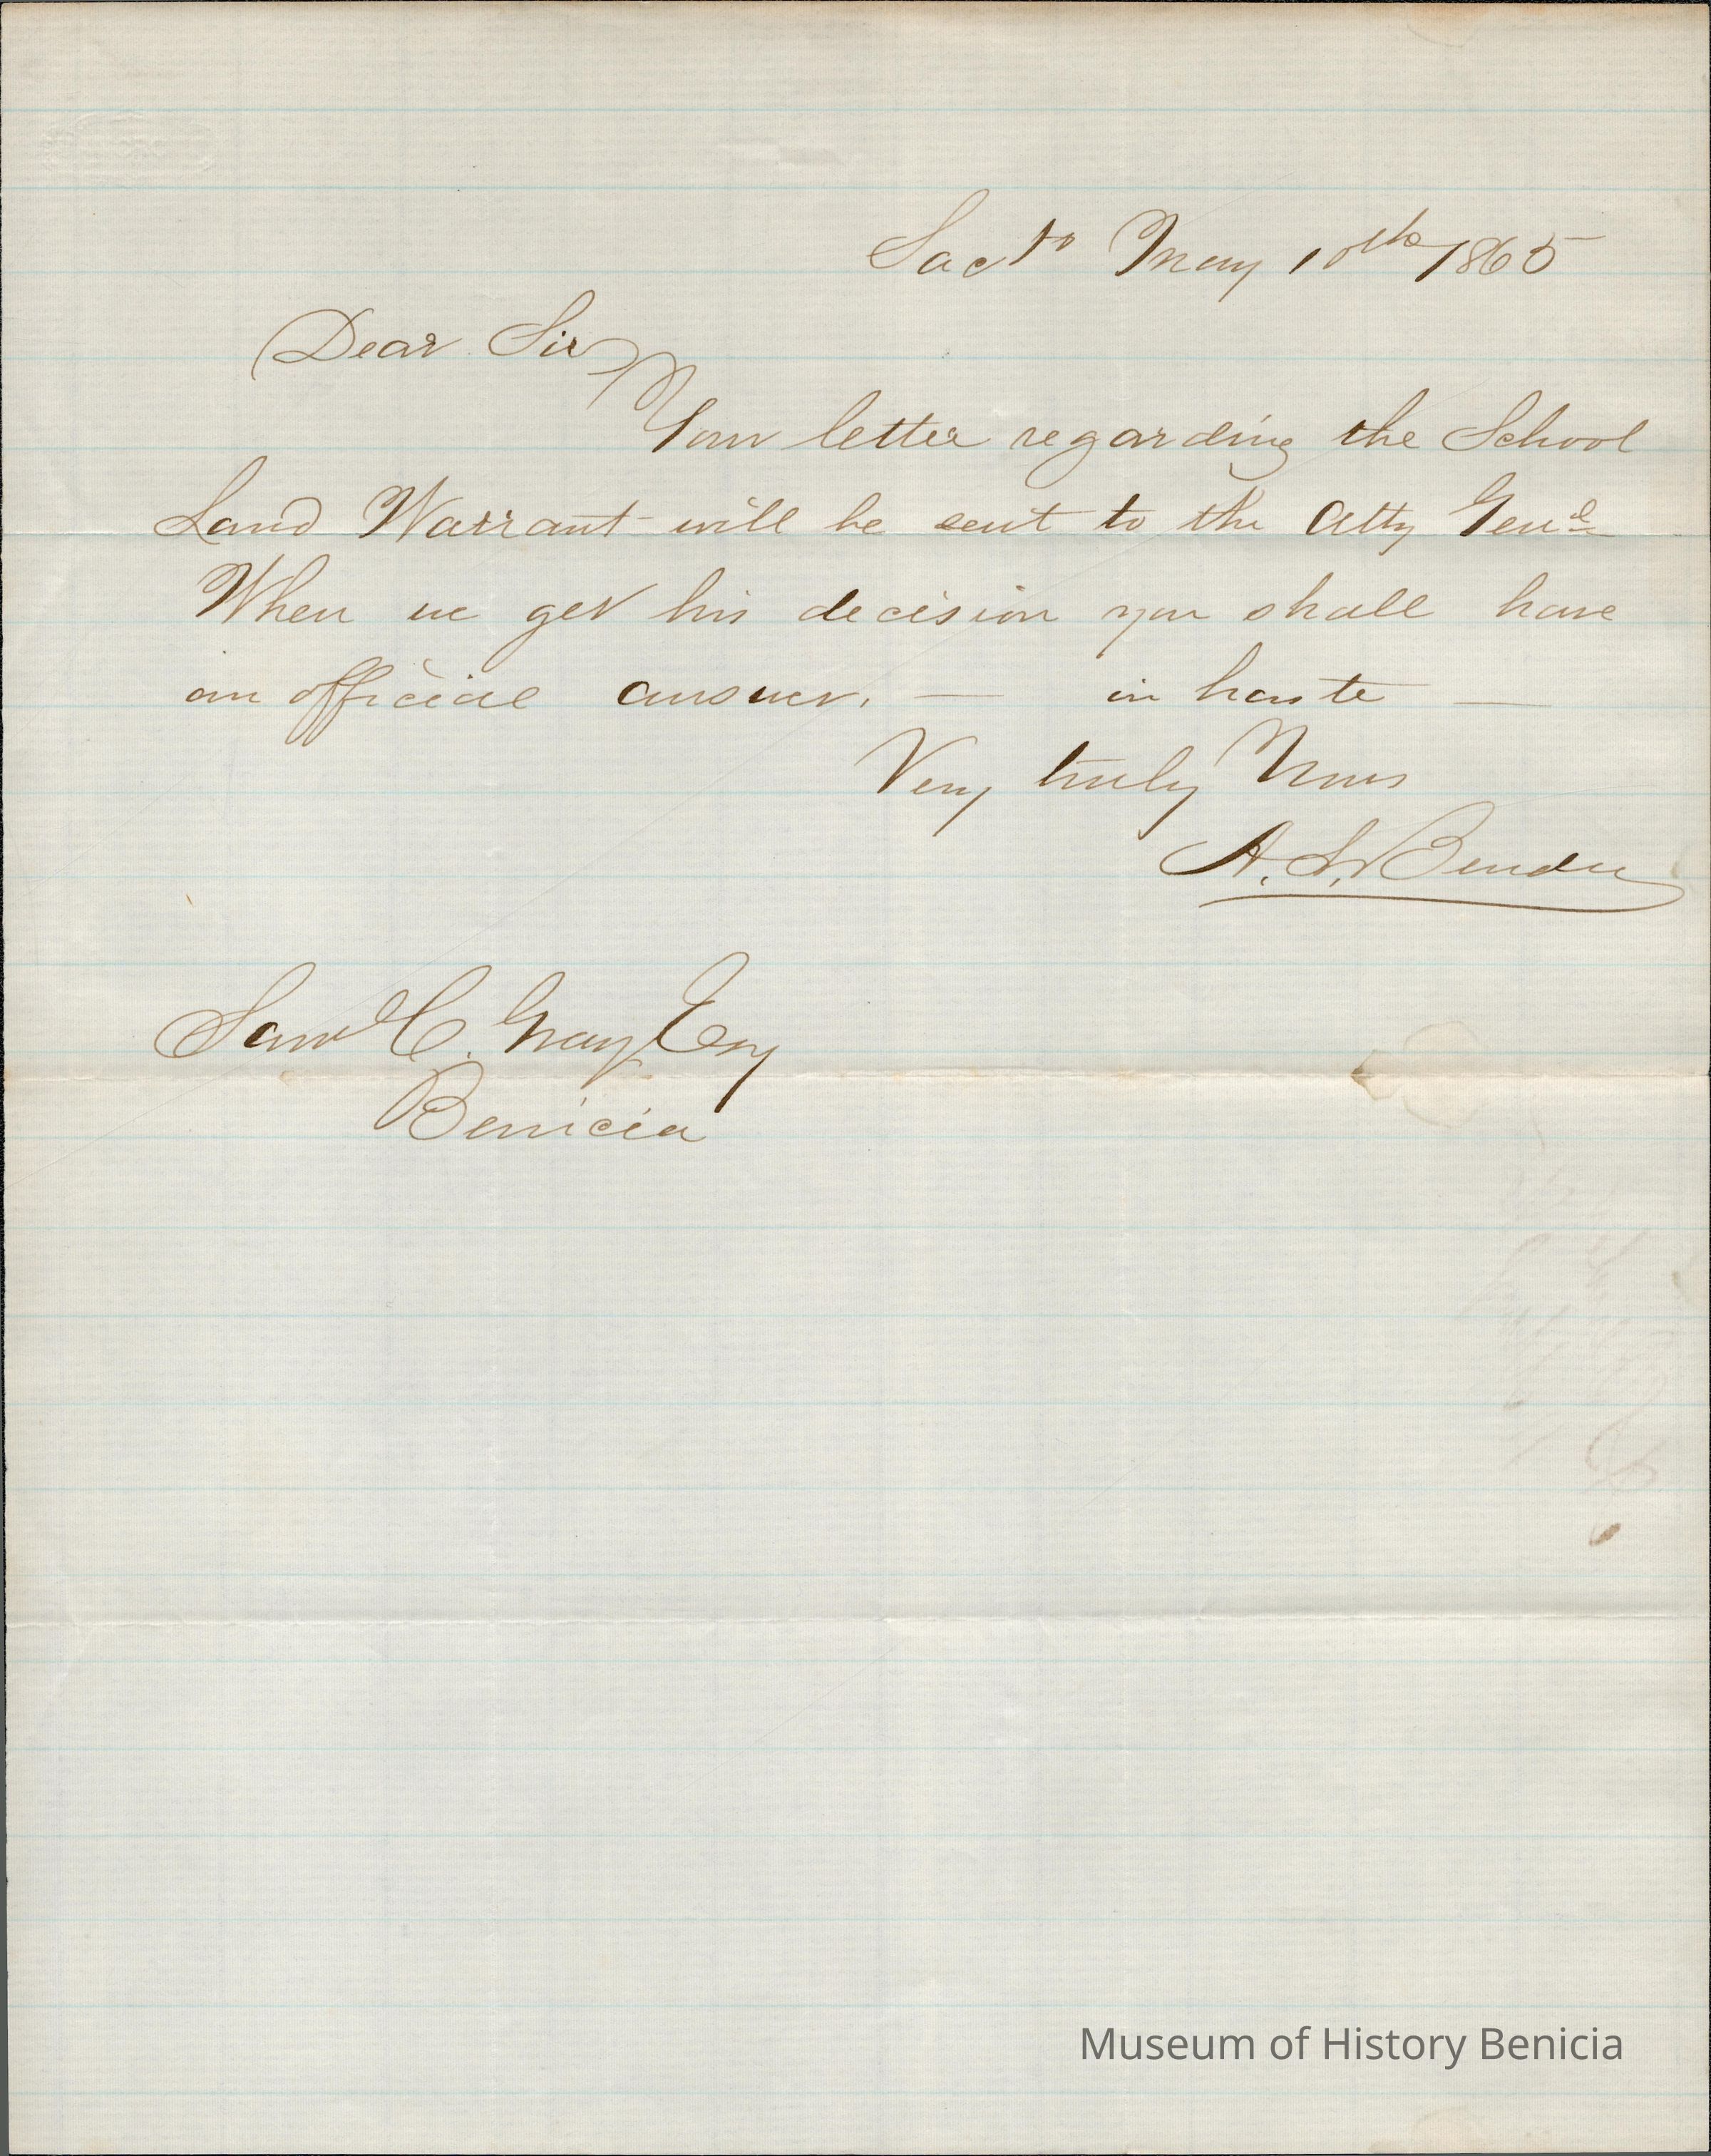 Sacto May 10th 1865
Dear Sir
Your letter regarding the School
Land Warrant will be sent to the Atty Genl
When we get his decision you shall have
an official answer. — in haste —
Very truly Yours
A. S. Bender
Saml C. Gray Esq
Benicia
Museum of History Benicia